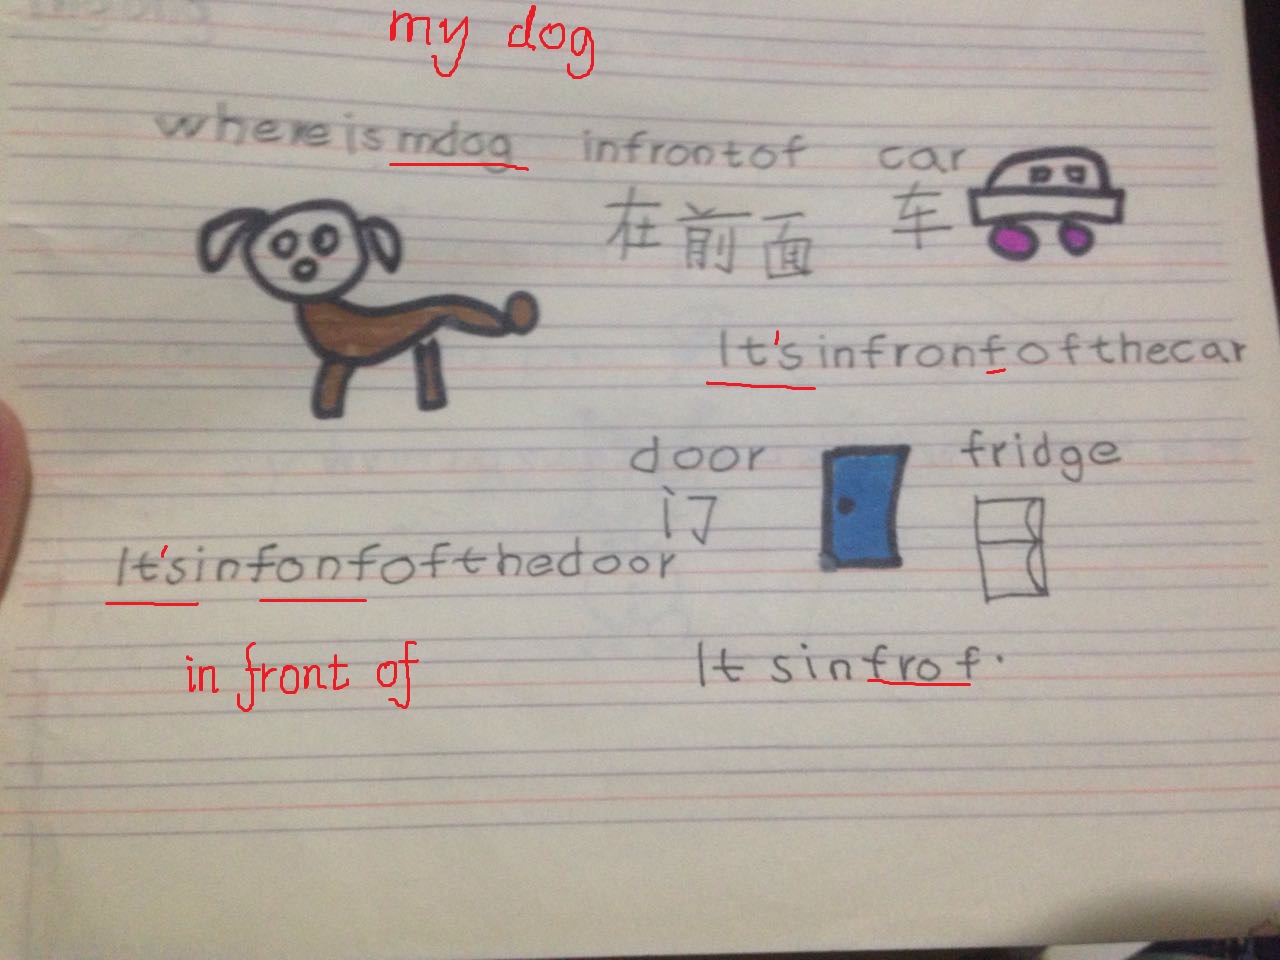 my dog
where is mdog infrontof car
在前面 车
It's infronf ofthecar
door fridge
门
It'sinfonfofthedoor
in front of
It sinfrof.